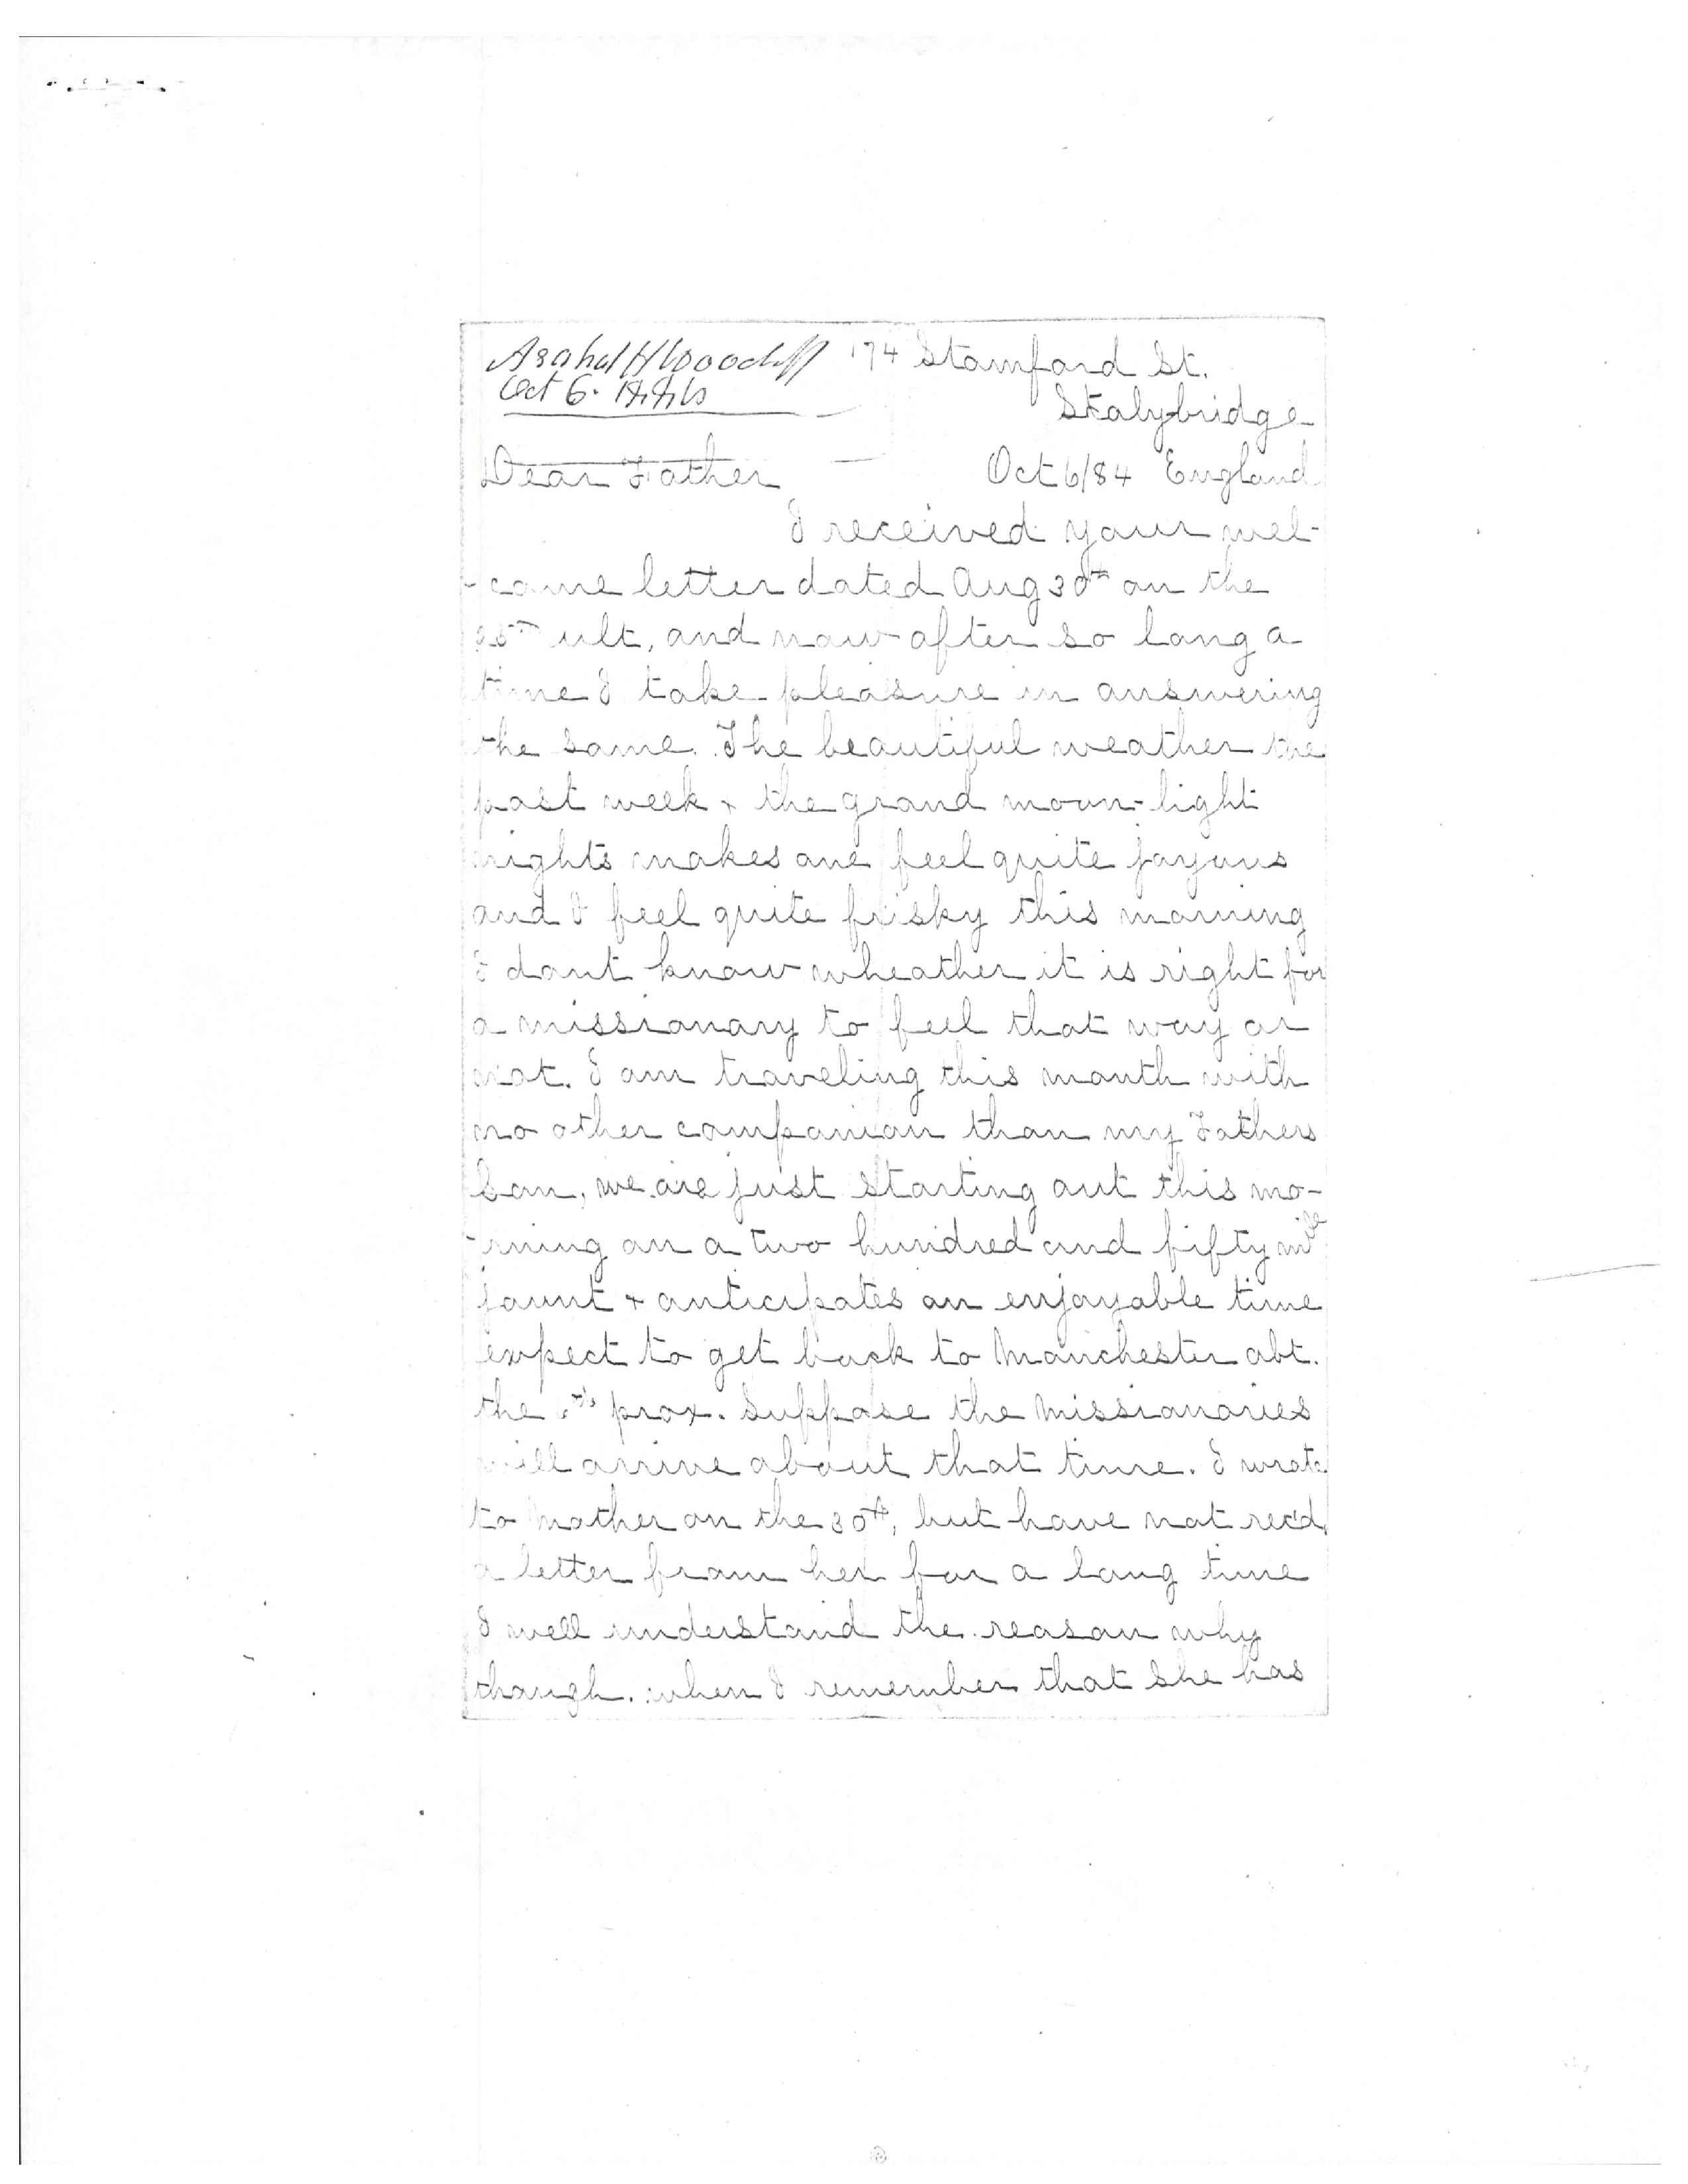 Asahel H Woodruff 174 Stamford St.
Oct 6. 1884 Stalybridge
Dear Father Oct 6/84 England
I received your wel-
-come letter dated Aug 30th on the
25th ult, and now after so long a
time I take pleasure in answering
the same. The beautiful weather the
past week + the grand moon-light
nights makes one feel quite joyous
and I feel quite frisky this morning
I dont know wheather it is right for
a missionary to feel that way or
not. I am traveling this month with
no other companion than my Fathers
Son, we are just starting out this mo-
-rning on a two hundred and fifty mile
jaunt + anticipates an enjoyable time
expect to get back to Manchester abt.
the prox. Suppose the Missionaries
will arrive about that time. I wrote
to Mother on the 30th, but have not rec'd.
a letter from her for a long time
I well understand the reason why
though. when I remember that she has